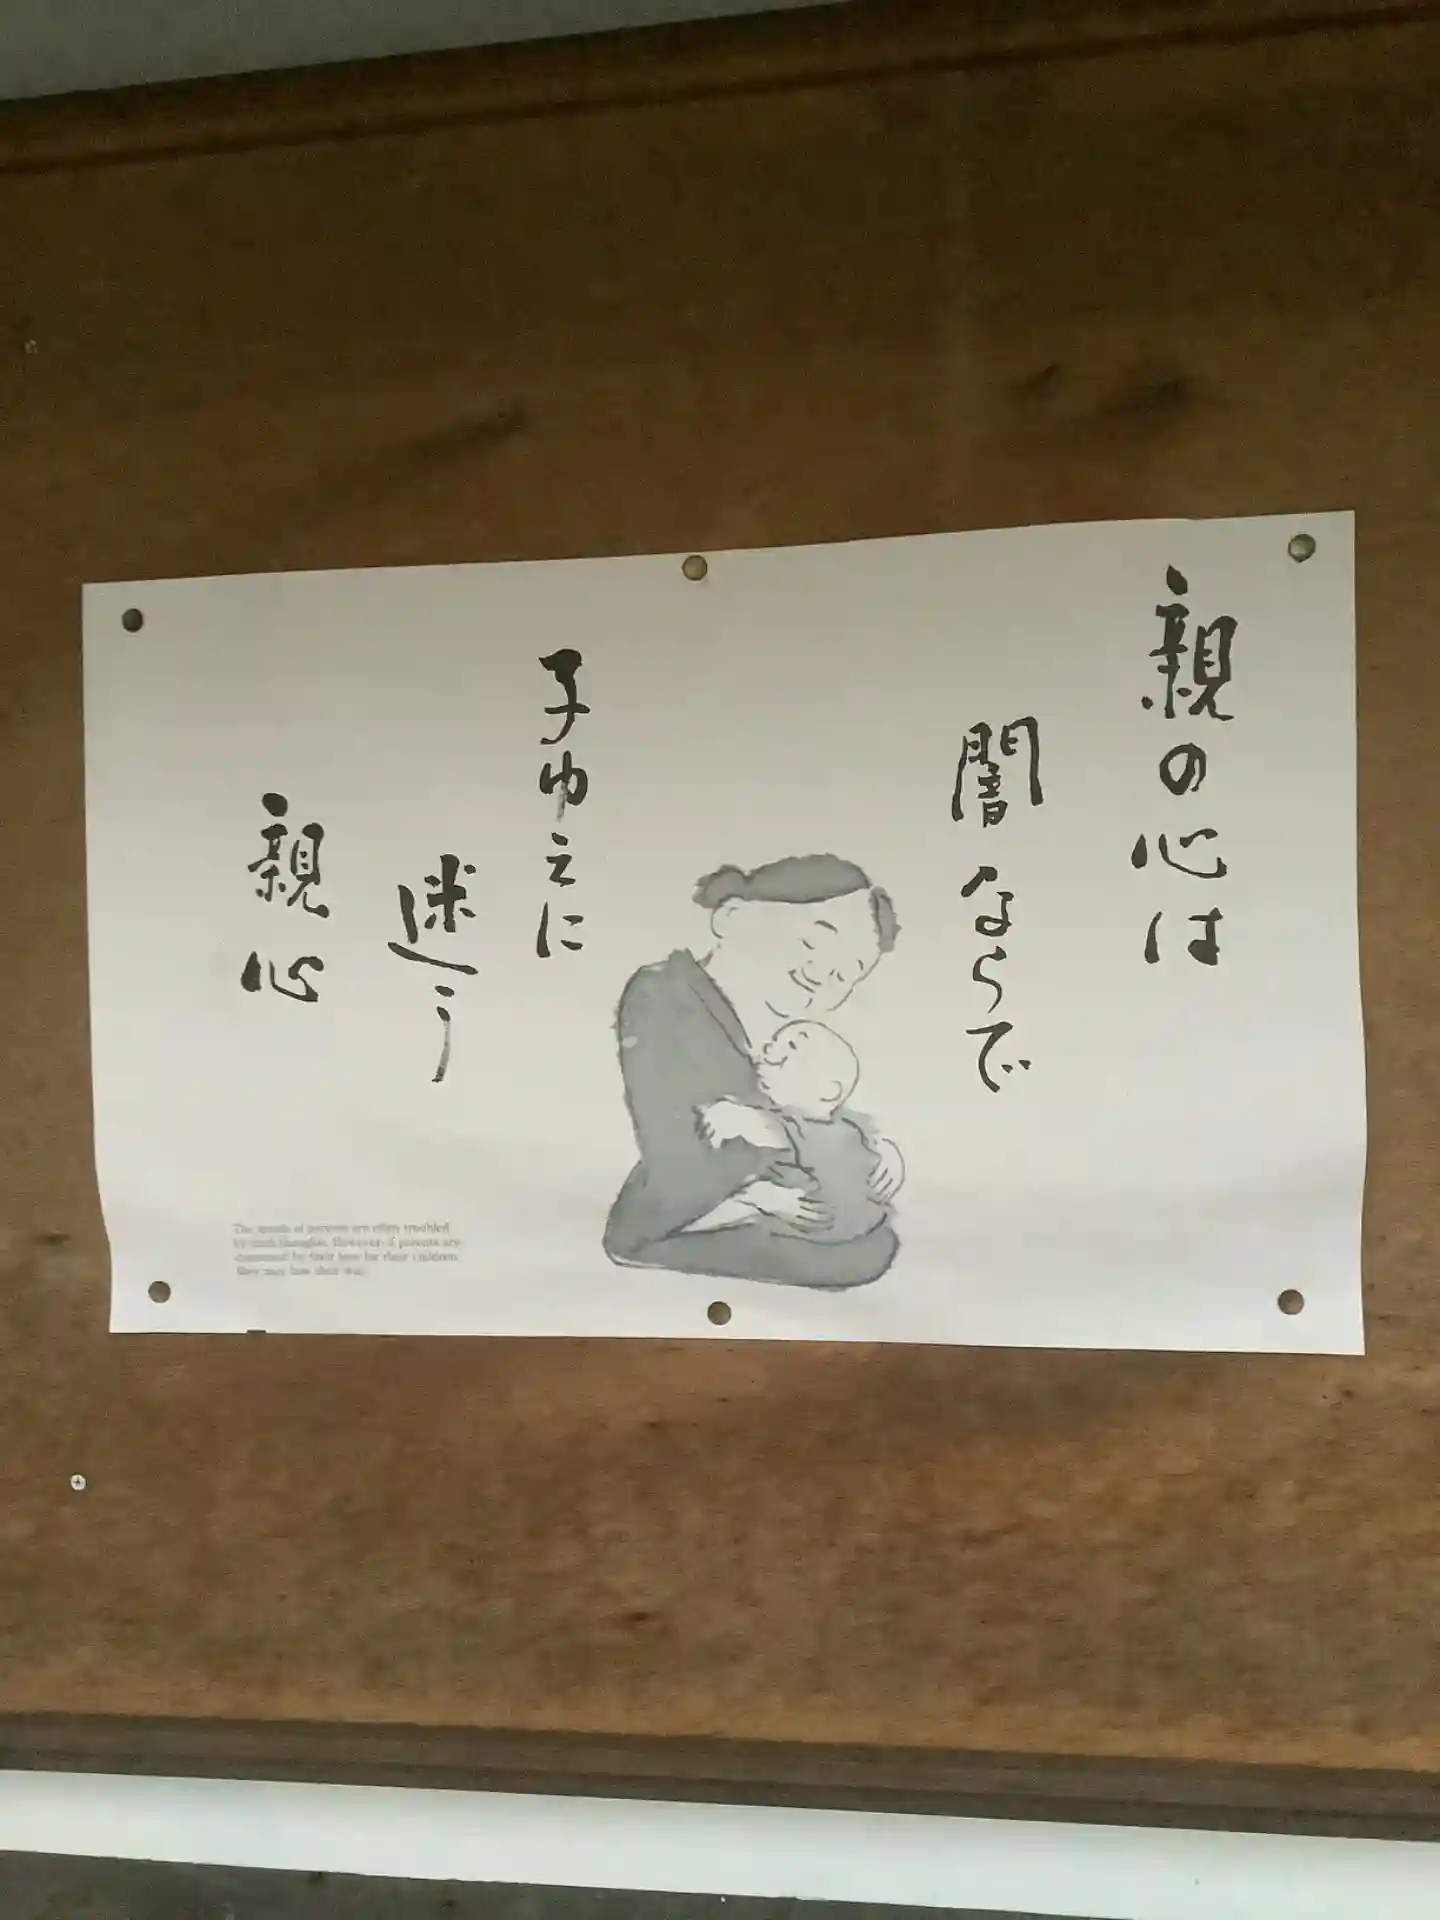 親の心は
闇ならで
子ゆえに
迷う
親心
The minds of parents are often troubled
by such thoughts. However, if parents are
consumed by their love for their children,
they may lose their way.